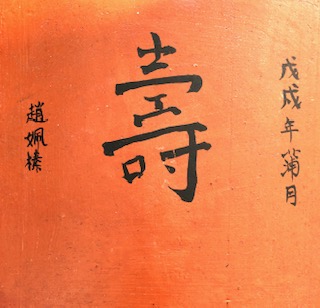 戊戌年蒲月
壽
趙姵榛